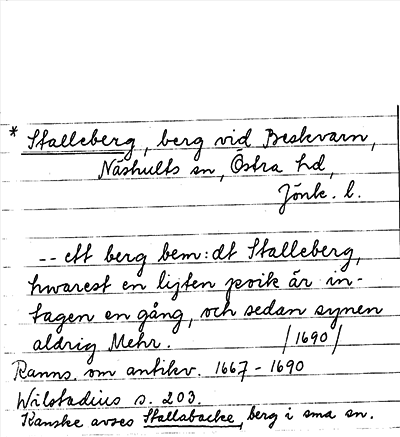 * Stalleberg, berg vid Beskvarn,
Näshults sn, Östra hd,
Jönk. l.
-- ett berg bem:dt Stalleberg,
hwarest en lijten poik är in-
tagen en gång, och sedan synen
aldrig Mehr. /1690/
Ranns. om antikv. 1667-1690
Wilstadius s. 203.
Kanske avses Stallabacke, berg i sma sn.